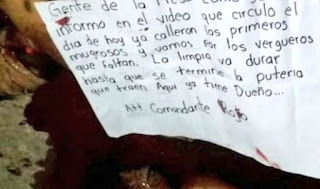 Gente de la Mesa
informo en el video que circulo el
dia de hoy ya calleron los primeros
mugrosos y vamos por los vergueros
que faltan. La limpia va durar
hasta que se termine la puteria
que traen Aqui ya tiene Dueño...
Att Comandante